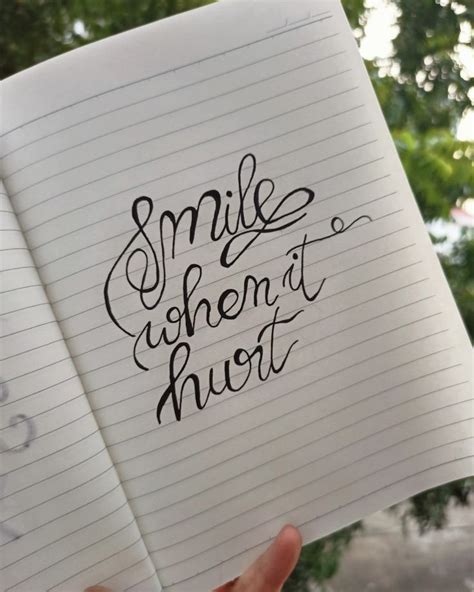 Smile
when it
hurt